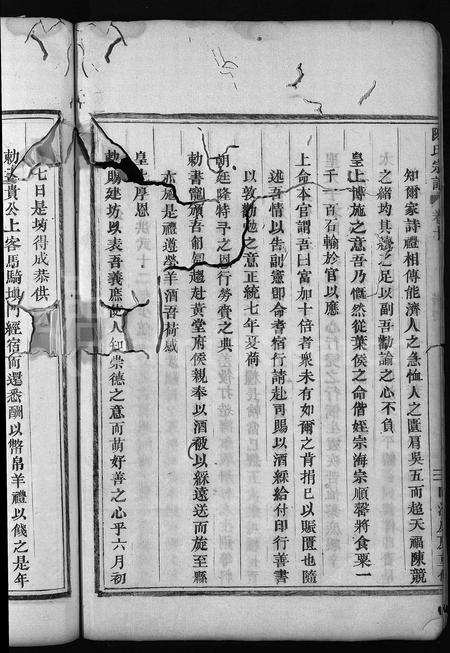 陳氏宗譜
卷
知爾家詩禮相傳能濟人之急恤人之匱肩吳五而超天福陳競
太之緒均其邊之足以副吾勸諭之心不負
皇上博施之意吾乃慨然從葉侯之命偕姪宗海宗順罄將食粟一
千一百石輸於官以應
上命本官謂吾曰富加十倍者衆未有如爾之肯捐己以賑匱也隨
述吾情以告副憲即命耆宿行請赴司賜以酒綵給付印行善書
以敦勸勉之意正統七年夏荷
朝廷隆特予之恩行勞賚之典
勅書寵頒吾匍匐趨赴黃堂府侯親奉以酒殽以綵遠送而旋至縣
亦施是禮道塋羊酒吾荷感
皇上厚恩
勅賜建坊以表吾義庶使人知崇德之意而萌好善之心乎六月初
七日是坊得成恭供
勅
貴公上客馬騎
經宿而還悉酬以幣帛羊禮以餞之是年